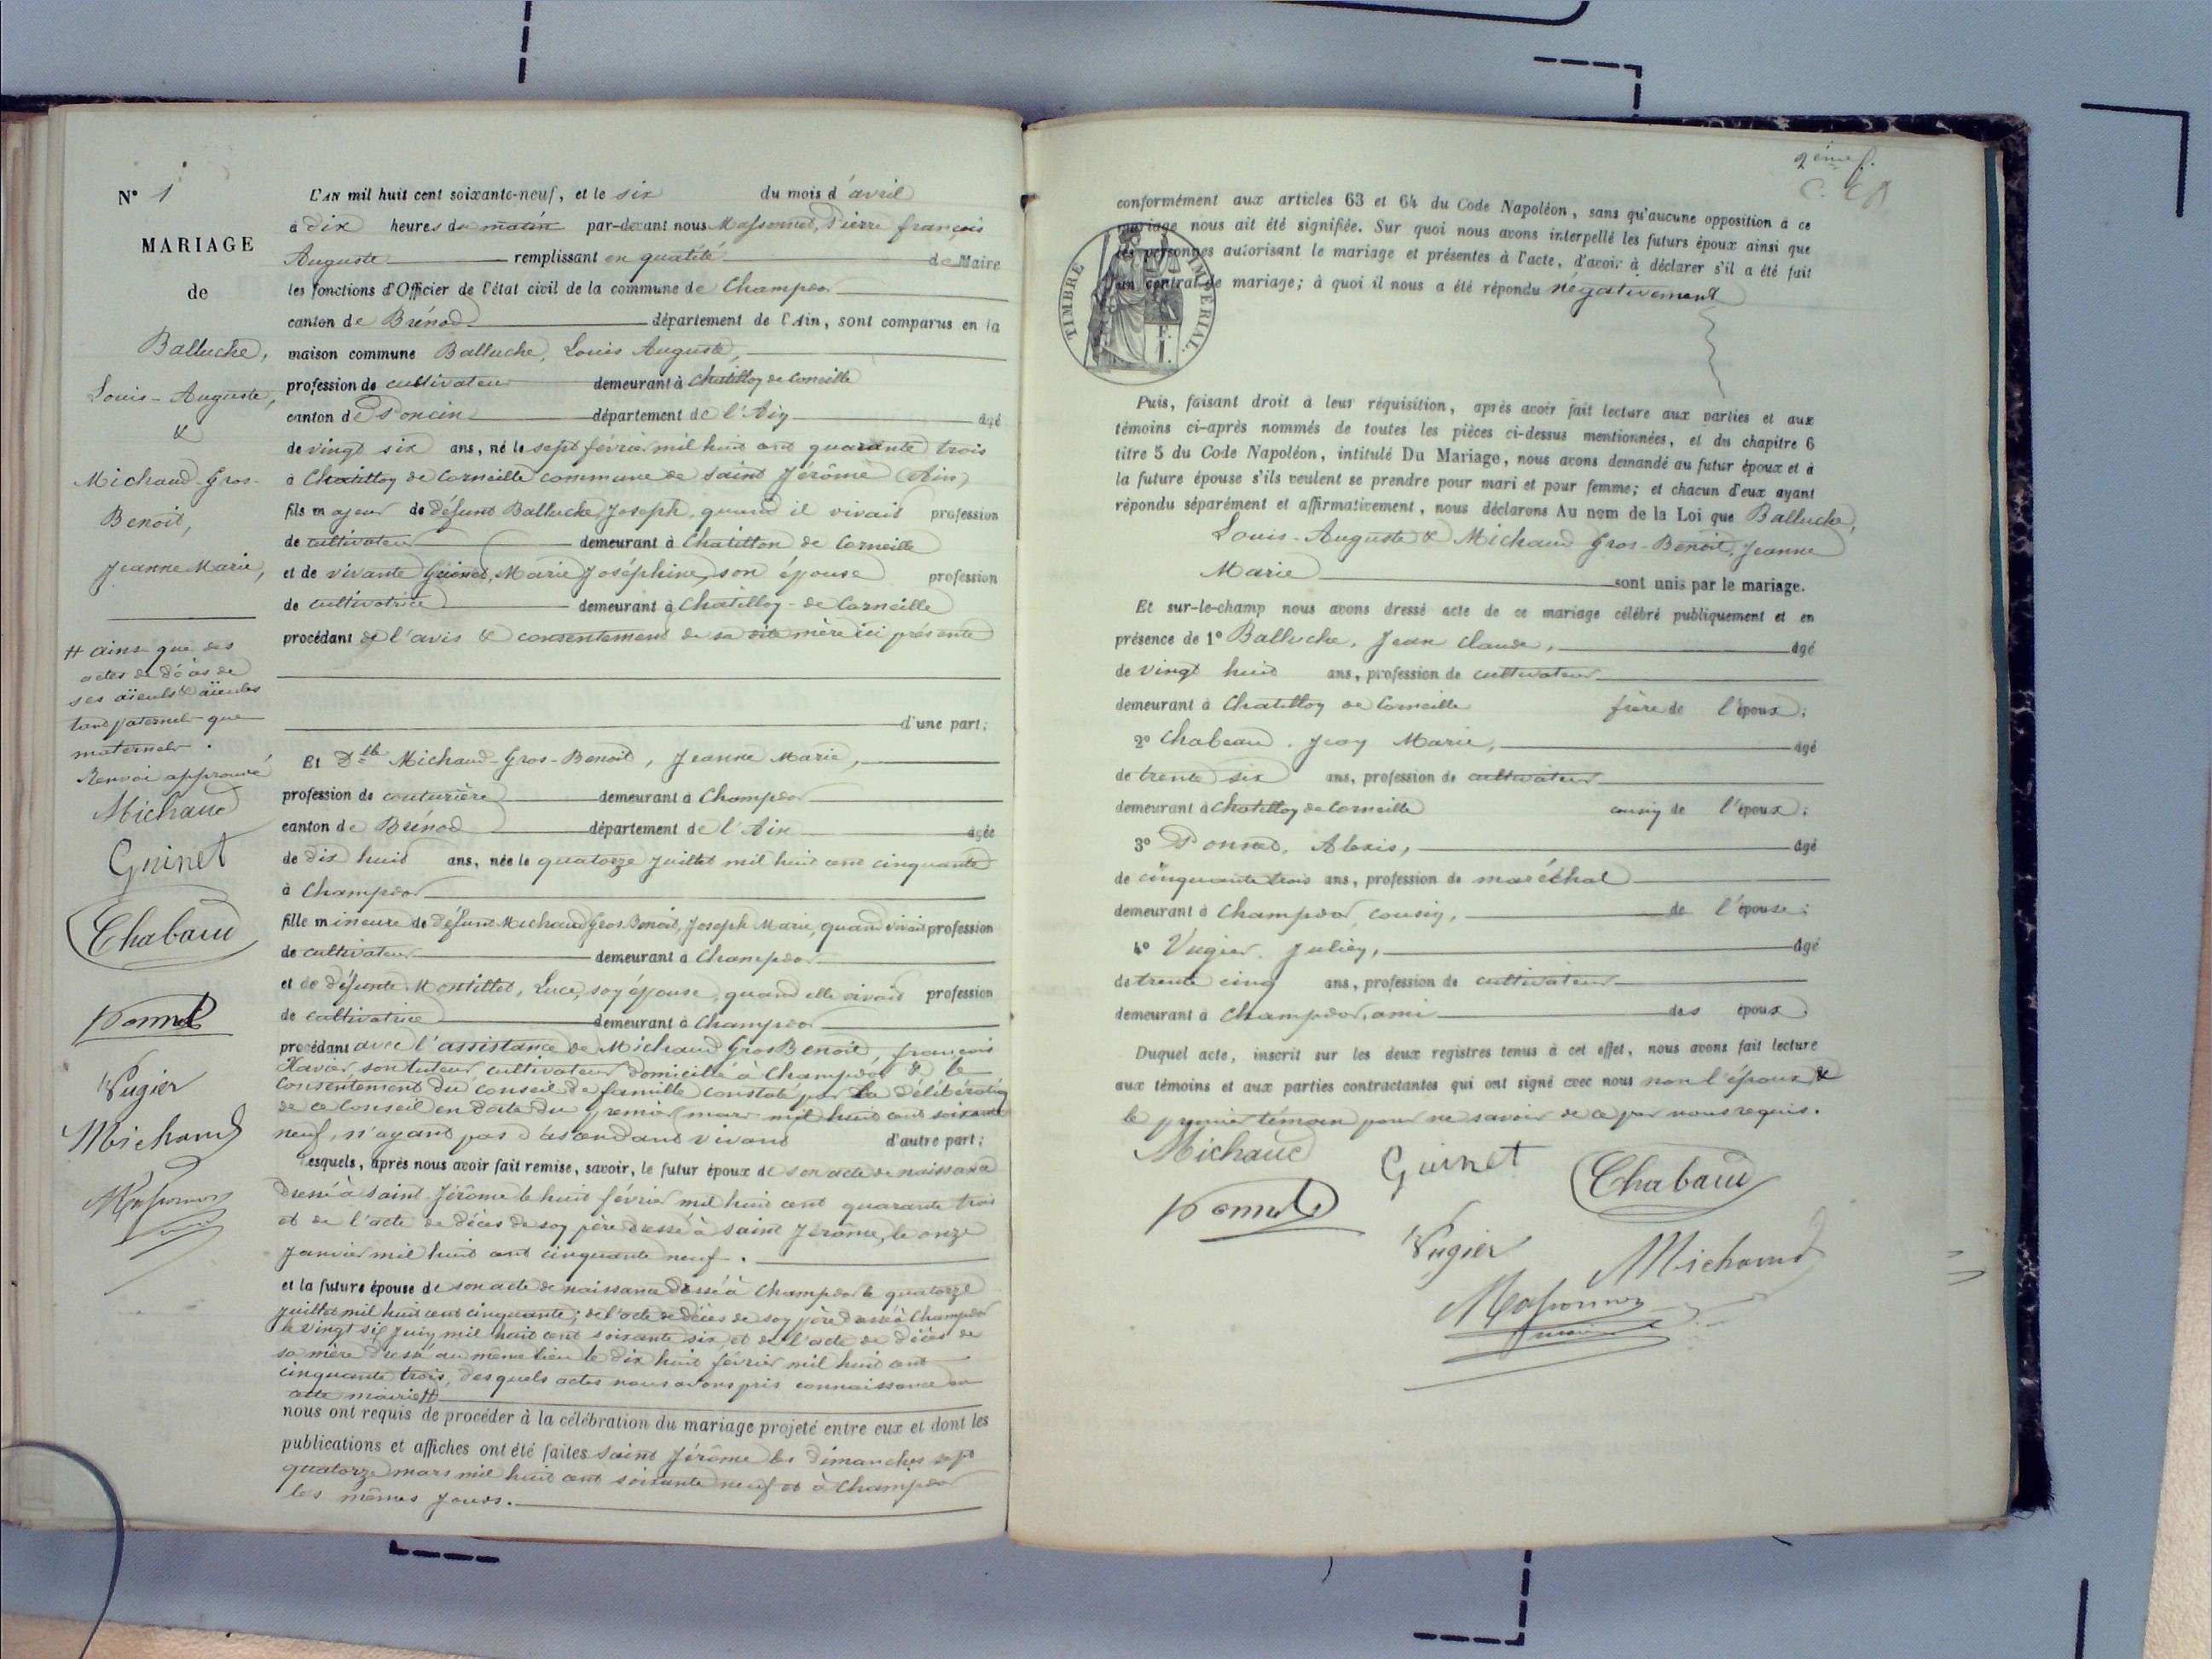 N° 1
MARIAGE
de
Balluche,
Louis-Auguste,
&
Michaud-Gros-
Benoit,
Jeanne Marie,
# ainsi que des
actes de décès de
ses aïeuls & aïeules
tant paternels que
maternels.
Renvoi approuvé
Michaud
Guinet
Chabaud
Ponnet
Vugier
Michaud
L'AN mil huit cent soixante-neuf, et le six du mois d'avril
à dix heures du matin par-devant nous Massonnet, Pierre françois
Auguste remplissant en qualité de Maire
les fonctions d'Officier de l'état civil de la commune de Champdor
canton de Brénod département de l'Ain, sont comparus en la
maison commune Balluche, Louis Auguste,
profession de cultivateur demeurant à Chatillon de Corneille
canton de Poncin département de l'Ain âgé
de vingt six ans, né le sept février mil huit cent quarante trois
à Chatillon de Corneille commune de Saint Jérôme (Ain)
fils majeur de défunt Balluche, Joseph, quand il vivait profession
de cultivateur demeurant à Chatillon de Corneille
et de vivante Guinet, Marie Joséphine, son épouse profession
de cultivatrice demeurant à Chatillon-de Corneille
procédant de l'avis & consentement de sa dite mère ici présente
d'une part;
Et Dlle Michaud-Gros-Benoit, Jeanne Marie,
profession de couturière demeurant à Champdor
canton de Brénod département de l'Ain âgée
de dix huit ans, née le quatorze juillet mil huit cent cinquante
à Champdor
fille mineure de défunt Michaud Gros Benoit, Joseph Marie, quand vivait profession
de cultivateur demeurant à Champdor
et de défunte Montillet, Luce, son épouse, quand elle vivait profession
de cultivatrice demeurant à Champdor
procédant avec l'assistance de Michaud Gros Benoit, françois
Xavier, son tuteur, cultivateur domicilié à Champdor & le
consentement du conseil de famille constaté par la délibération
de ce Conseil en date du premier mars mil huit cent soixante
neuf, n'ayant pas d'ascendant vivant d'autre part;
Lesquels, après nous avoir fait remise, savoir, le futur époux de son acte de naissance
dressé à Saint-Jérôme le huit février mil huit cent quarante trois
et de l'acte de décès de son père dressé à Saint Jérôme, le onze
Janvier mil huit cent cinquante neuf.
et la future épouse de son acte de naissance dressé à Champdor le quatorze
juillet mil huit cent cinquante; de l'acte de décès de son père dressé à Champdor
le vingt six juin mil huit cent soixante six, et de l'acte de décès de
sa mère dressé au même lieu le dix huit février mil huit cent
cinquante trois, desquels actes nous avons pris connaissance en
cette mairie #
nous ont requis de procéder à la célébration du mariage projeté entre eux et dont les
publications et affiches ont été faites Saint Jérôme les dimanches sept
quatorze mars mil huit cent soixante neuf et à Champdor
les mêmes jours.
2ème f.
conformément aux articles 63 et 64 du Code Napoléon, sans qu'aucune opposition à ce
mariage nous ait été signifiée. Sur quoi nous avons interpellé les futurs époux ainsi que
les personnes autorisant le mariage et présentes à l'acte, d'avoir à déclarer s'il a été fait
un contrat de mariage; à quoi il nous a été répondu négativement
TIMBRE IMPÉRIAL.
Puis, faisant droit à leur réquisition, après avoir fait lecture aux parties et aux
témoins ci-après nommés de toutes les pièces ci-dessus mentionnées, et du chapitre 6
titre 5 du Code Napoléon, intitulé Du Mariage, nous avons demandé au futur époux et à
la future épouse s'ils veulent se prendre pour mari et pour femme; et chacun d'eux ayant
répondu séparément et affirmativement, nous déclarons Au nom de la Loi que Balluche,
Louis-Auguste & Michaud Gros-Benoit, Jeanne
Marie sont unis par le mariage.
Et sur-le-champ nous avons dressé acte de ce mariage célébré publiquement et en
présence de 1° Balluche, Jean Claude, âgé
de vingt huit ans, profession de cultivateur
demeurant à Chatillon de Corneille frère de l'époux;
2° Chabeau, Jean Marie, âgé
de trente six ans, profession de cultivateur
demeurant à Chatillon de Corneille cousin de l'époux;
3° Ponnet, Alexis, âgé
de cinquante trois ans, profession de maréchal
demeurant à Champdor, cousin, de l'épouse;
4° Vugier, Julien, âgé
de trente cinq ans, profession de cultivateur
demeurant à Champdor, ami des époux.
Duquel acte, inscrit sur les deux registres tenus à cet effet, nous avons fait lecture
aux témoins et aux parties contractantes qui ont signé avec nous non l'époux &
le premier témoin pour ne savoir de ce par nous requis.
Michaud Guinet Chabaud
Ponnet
Vugier Michaud
Massonnet
maire